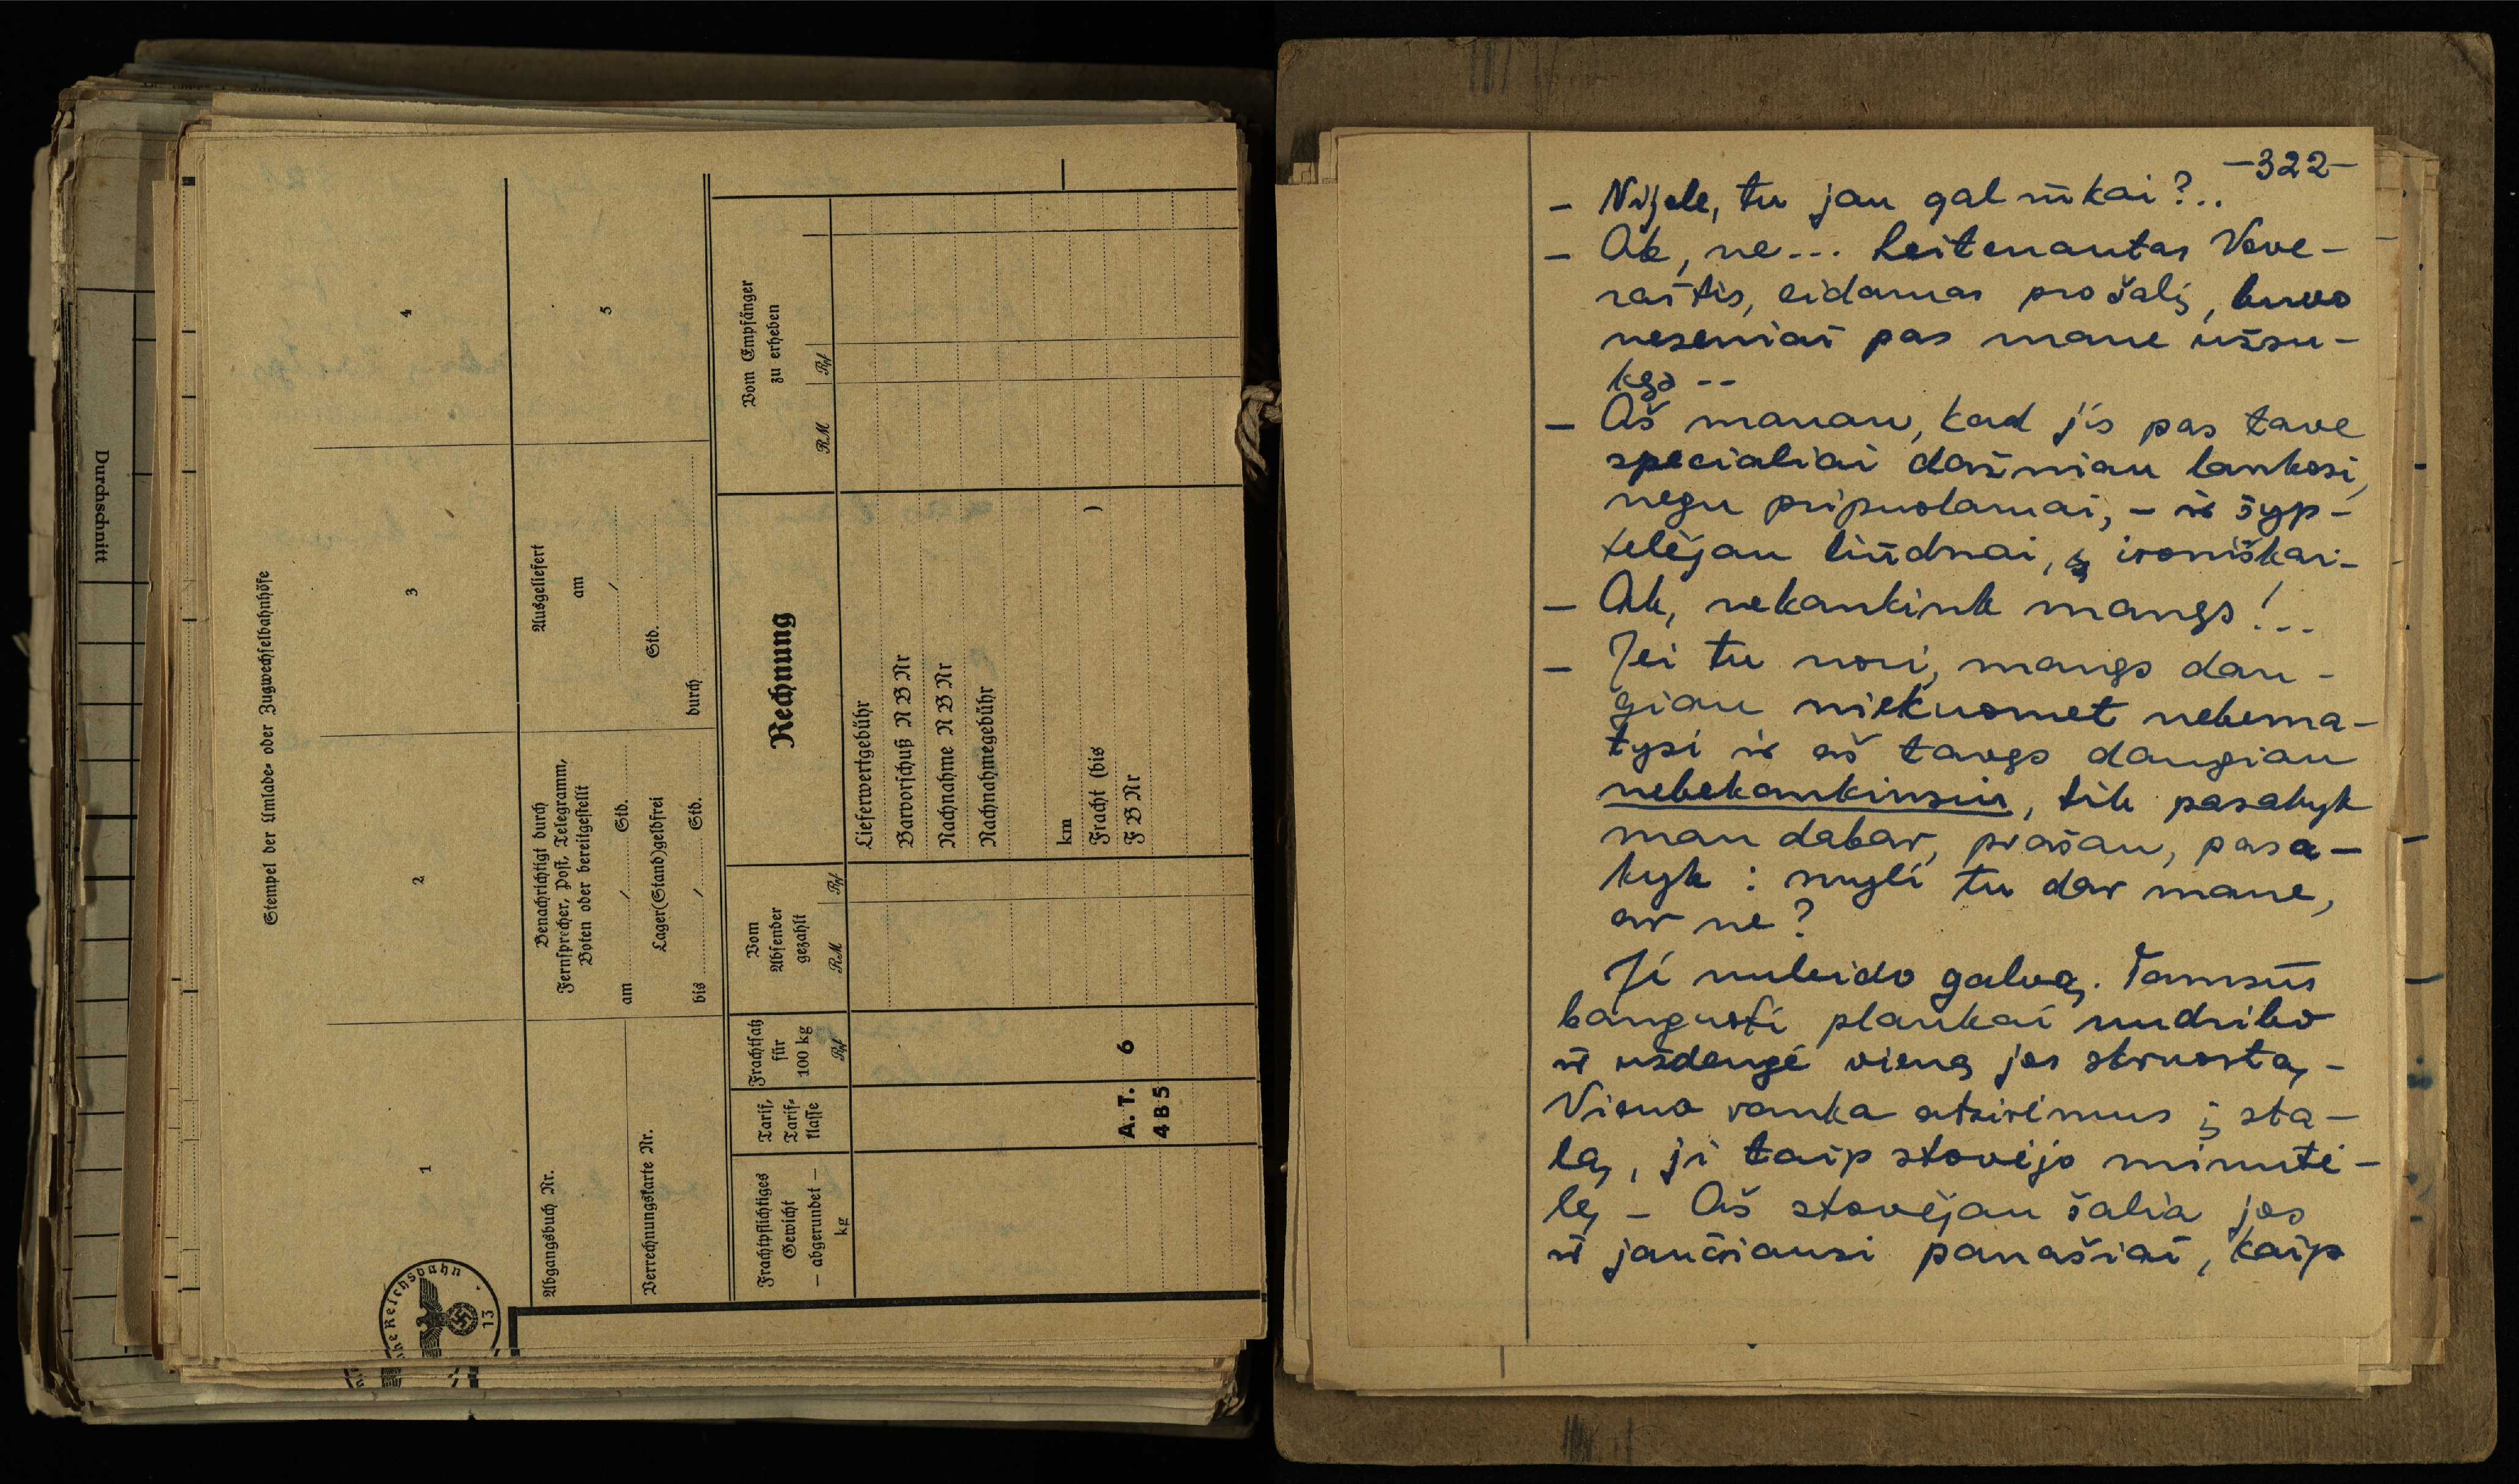 Durchschnitt
Stempel der Umlade- oder Zugwechselbahnhöfe
1
2
3
4
5
Abgangsbuch Nr.
Verrechnungskarte Nr.
Benachrichtigt durch
Fernsprecher, Post, Telegramm,
Boten oder bereitgestellt
am / Std.
Lager(Stand)geldfrei
bis / Std.
Ausgeliefert
am
/
Std.
durch
Frachtpflichtiges
Gewicht
— abgerundet —
kg
Tarif,
Tarif-
klasse
Frachtsatz
für
100 kg
Rpf
Vom
Absender
gezahlt
RM Rpf
Rechnung
Vom Empfänger
zu erheben
RM Rpf
Lieferwertgebühr
Barvorschuß N B Nr
Nachnahme N B Nr
Nachnahmegebühr
km
Fracht (bis )
F B Nr
A. T. 6
4 B 5
he Reichsbahn
13
—322—
– Nijole, tu jau gal rūkai?..
– Ak, ne... Leitenantas Vove-
raitis, eidamas pro šalį, buvo
neseniai pas mane užsu-
kęs --
– Aš manau, kad jis pas tave
specialiai dažniau lankosi,
negu pripuolamai, – ir šyp-
telėjau liūdnai, ironiškai –
– Ak, nekankink manęs!...
– Jei tu nori, manęs dau-
giau niekuomet nebema-
tysi ir aš tavęs daugiau
nebekankinsiu, tik pasakyk
man dabar, prašau, pasa-
kyk : myli tu dar mane,
ar ne?
Ji nuleido galvą. Tamsūs
banguoti plaukai nudribo
ir uždengė vieną jos skruostą –
Viena ranka atsirėmus į sta-
lą, ji taip stovėjo minutė-
lę – Aš stovėjau šalia jos
ir jaučiausi panašiai, kaip